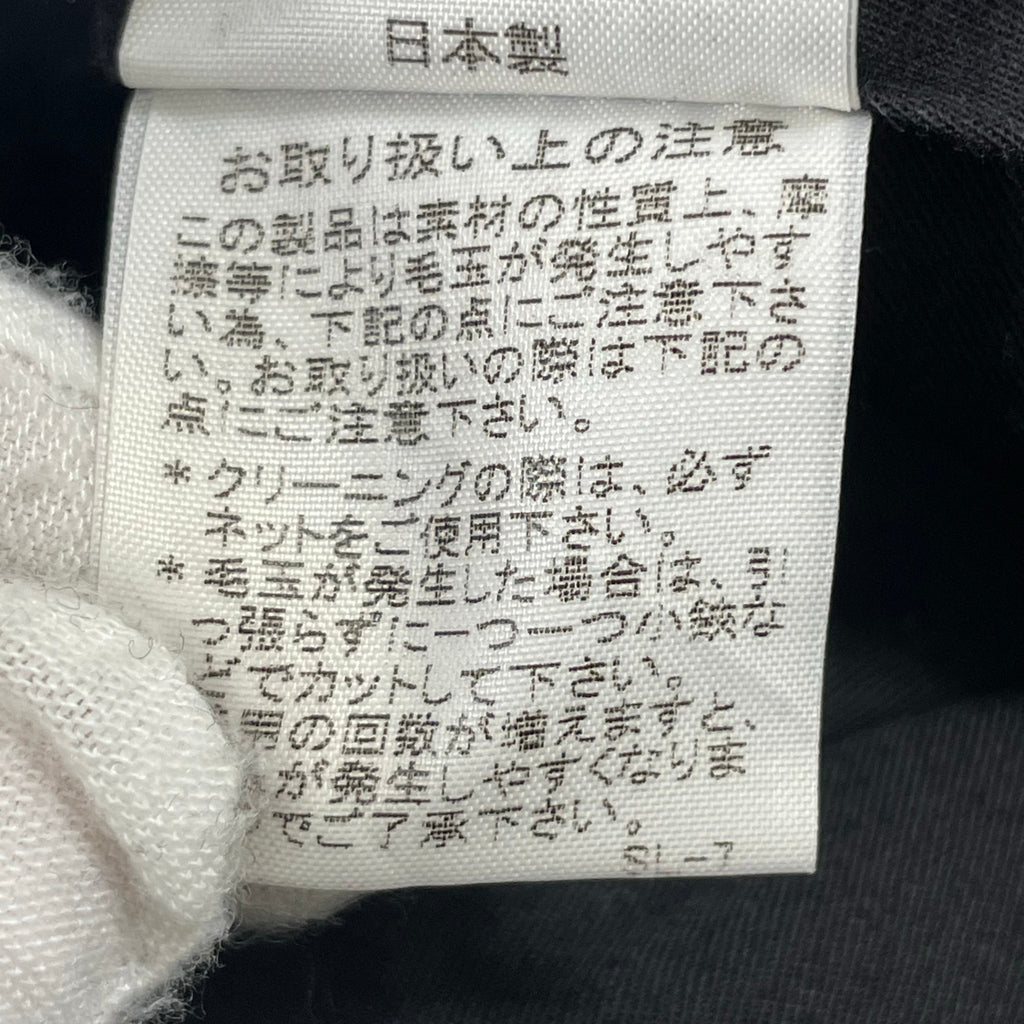 日本製
お取り扱い上の注意
この製品は素材の性質上、摩
擦等により毛玉が発生しやす
い為、下記の点にご注意下さ
い。お取り扱いの際は下記の
点にご注意下さい。
*クリーニングの際は、必ず
ネットをご使用下さい。
*毛玉が発生した場合は、引
っ張らずに一つ一つ小鋏な
どでカットして下さい。
用の回数が増えますと、
が発生しやすくなりま
でご了承下さい。
SL-7